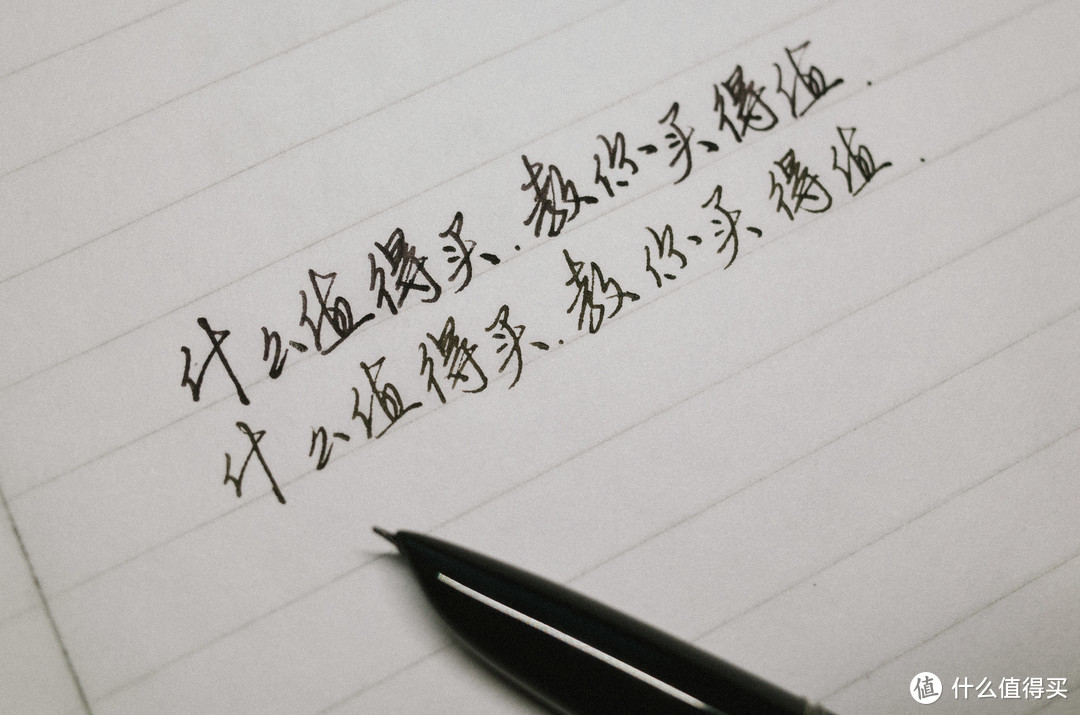 什么值得买.教你买得值.
什么值得买.教你买得值.
值 什么值得买